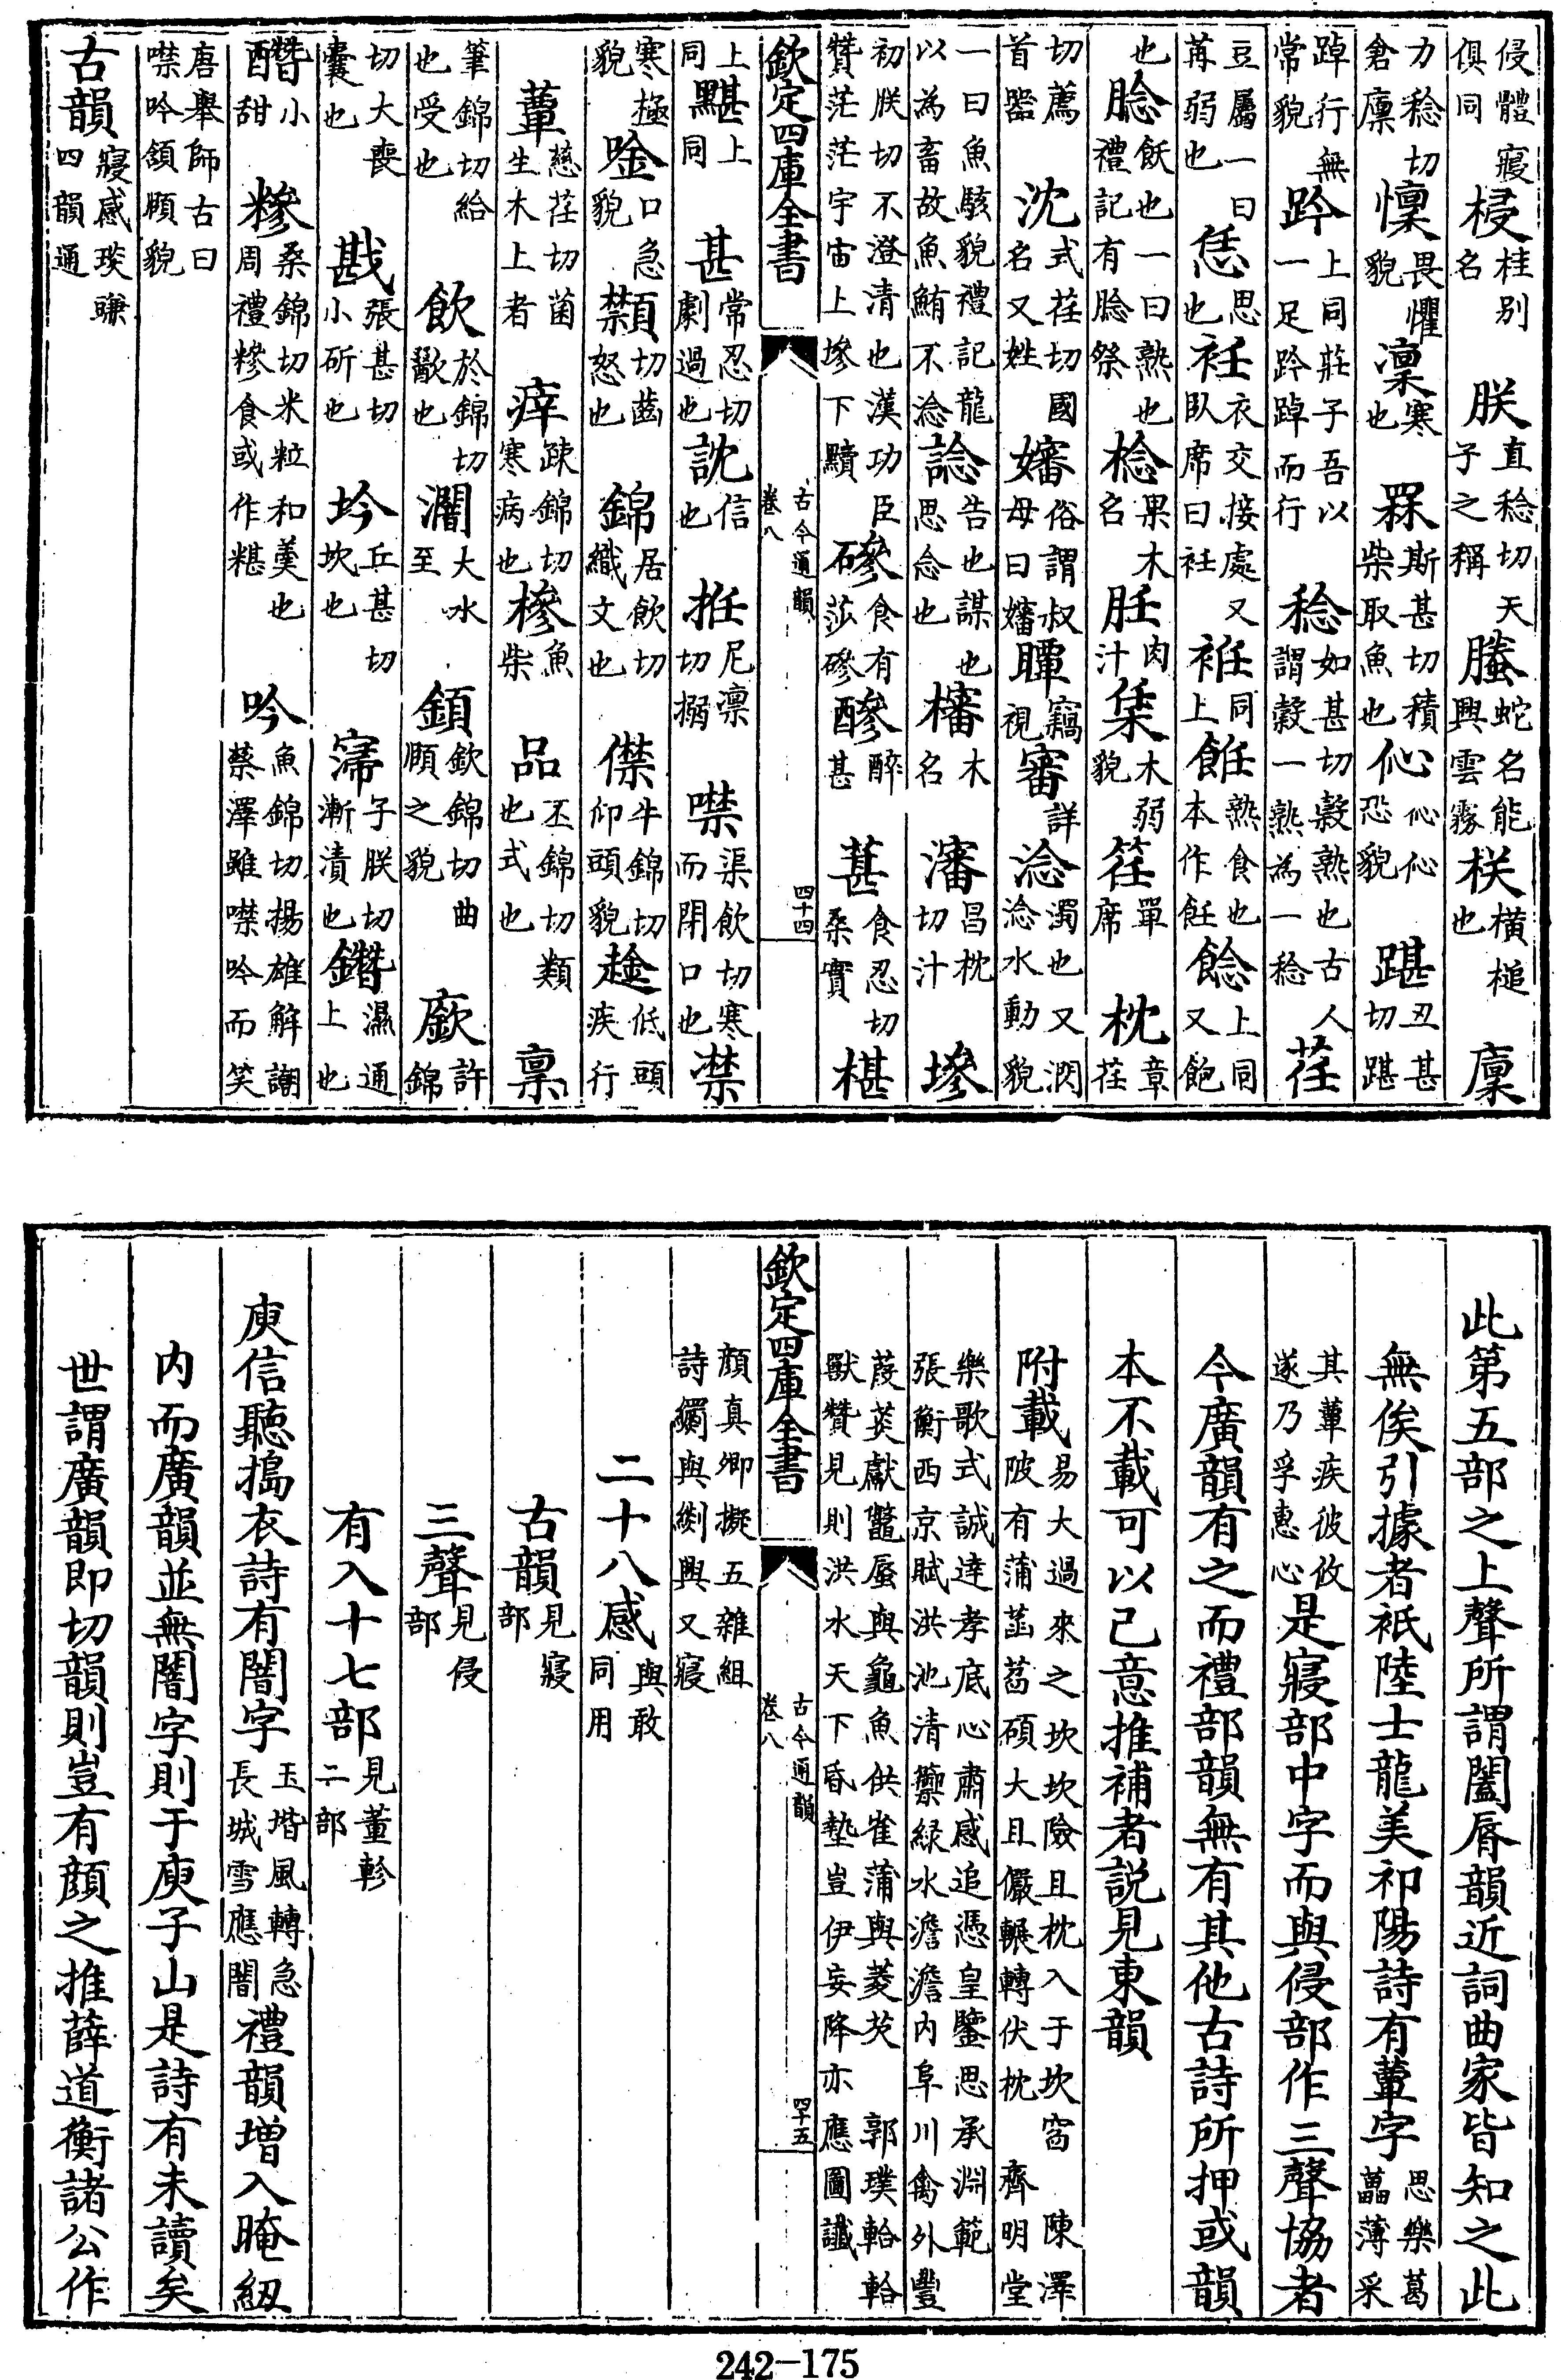 侵體寢俱同梫桂別名朕直稔切天子之稱螣蛇名能興雲霧栚橫槌也廩
力稔切倉廩懍畏懼貌凜寒也罧斯甚切積柴取魚也伈伈伈恐貌踸丑甚切踸
踔行無常貌趻上同莊子吾以一足趻踔而行稔如甚切穀熟也古人謂穀一熟為一稔荏
豆屬一曰苒弱也恁思也衽衣交接處又臥席曰衽袵上同餁熟食也本作飪餯上同又飽
也腍飪也一曰熟也禮記有腍祭棯果木名腍肉汁栠木弱貌荏單席枕章荏
切薦首噐沈式荏切國名又姓嬸俗謂叔母曰嬸瞫竊視審詳淰濁也又淰水動貌
一曰魚駭貌禮記龍以為畜故魚鮪不淰諗告也謀也思念也橓木名瀋昌枕切汁墋
初朕切不澄清也漢功臣贊茫茫宇宙上墋下黷磣食有莎磣醦醉甚葚食忍切桑實椹
欽定四庫全書 古今通韻 卷八 四十四
上同黮上同甚常忍切劇過也訦信也拰尼凜切搦噤渠飲切寒而閉口也凚
寒極貌唫口急貌顉切齒怒也錦居飲切織文也僸牛錦切仰頭貌趛低頭疾行
蕈慈荏切菌生木上者瘁疎錦切寒病也槮魚柴品丕錦切類也式也稟
筆錦切給也受也飲於錦切歠也濶大水至顉欽錦切曲頤之貌廞許錦
切大喪囊也戡張甚切小斫也坅丘甚切坎也寖子朕切漸漬也鐕濕通上也
醋小甜糝桑錦切米粒和羹也周禮糝食或作糂吟魚錦切揚雄解謿蔡澤雖噤吟而笑
唐舉師古曰噤吟頷頤貌
古韻四韻通寢感琰豏
此第五部之上聲所謂闔脣韻近詞曲家皆知之此
無俟引據者祇陸士龍美祁陽詩有蕈字思樂葛藟薄采
其蕈疾彼攸遂乃孚惠心是寢部中字而與侵部作三聲協者
今廣韻有之而禮部韻無有其他古詩所押或韻
本不載可以己意推補者説見東韻
附載易大過來之坎坎險且枕入于坎窞 陳澤陂有蒲菡萏碩大且儼輾轉伏枕 齊明堂
樂歌式誠達孝底心肅感追憑皇鑒思承淵範 張衡西京賦洪池清籞緑水澹澹内阜川禽外豐
葭菼獻鼈蜃與龜魚供雀蒲與菱芡 郭璞軩軩獸贊見則洪水天下昏墊豈伊妄降亦應圖讖
欽定四庫全書 古今通韻 卷八 四十五
顏真卿擬五雜組詩纈與紲興又寢
二十八感與敢同用
古韻見寢部
三聲見侵部
有入十七部見董軫二部
庾信聽搗衣詩有闇字玉堦風轉急長城雪應闇禮韻增入晻紐
内而廣韻並無闇字則于庾子山是詩有未讀矣
世謂廣韻即切韻則豈有顔之推薛道衡諸公作
242-175